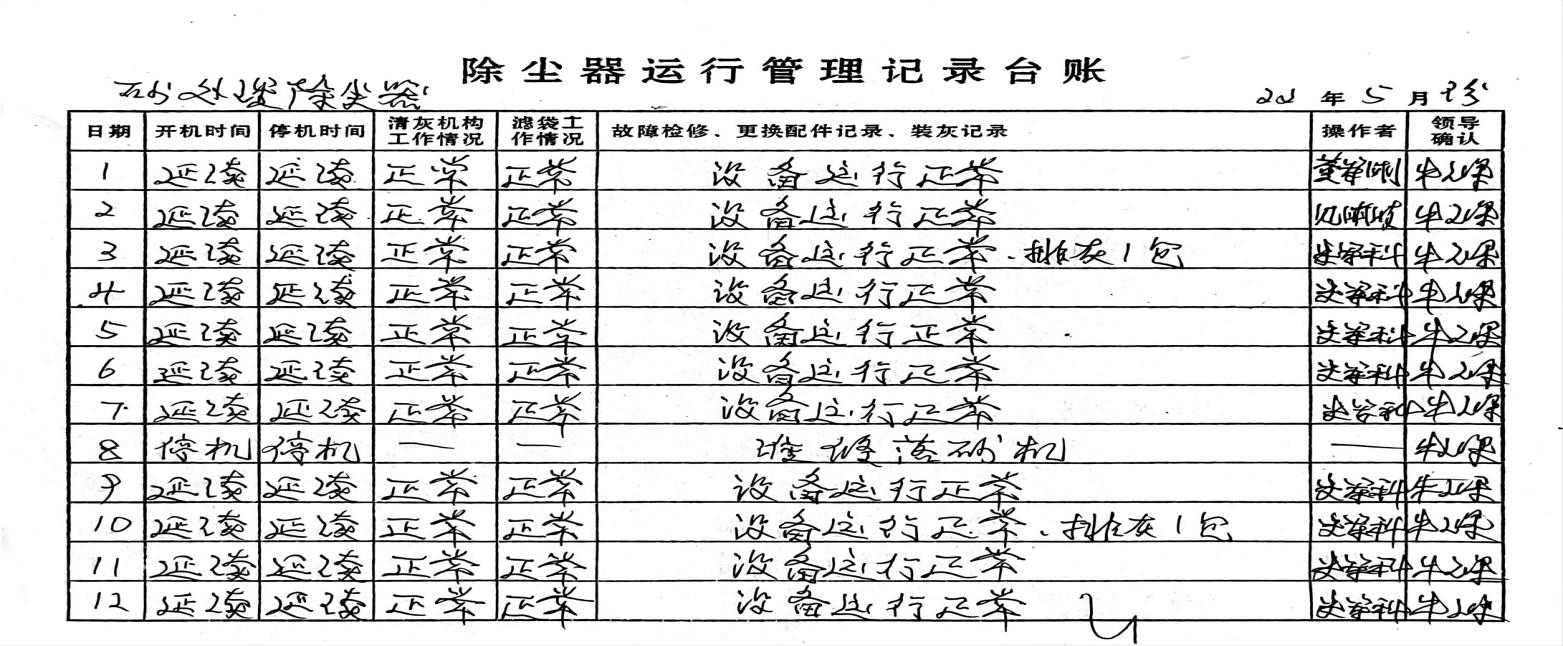 除尘器运行管理记录台账
砂处理除尘器 年 5 月
日期 开机时间 停机时间 清灰机构工作情况 滤袋工作情况 故障检修、更换配件记录、装灰记录 操作者 领导确认
1 延续 延续 正常 正常 设备运行正常
2 延续 延续 正常 正常 设备运行正常
3 延续 延续 正常 正常 设备运行正常.排灰1包
4 延续 延续 正常 正常 设备运行正常
5 延续 延续 正常 正常 设备运行正常
6 延续 延续 正常 正常 设备运行正常
7 延续 延续 正常 正常 设备运行正常
8 停机 停机 — — 维修落砂机 —
9 延续 延续 正常 正常 设备运行正常
10 延续 延续 正常 正常 设备运行正常.排灰1包
11 延续 延续 正常 正常 设备运行正常
12 延续 延续 正常 正常 设备运行正常